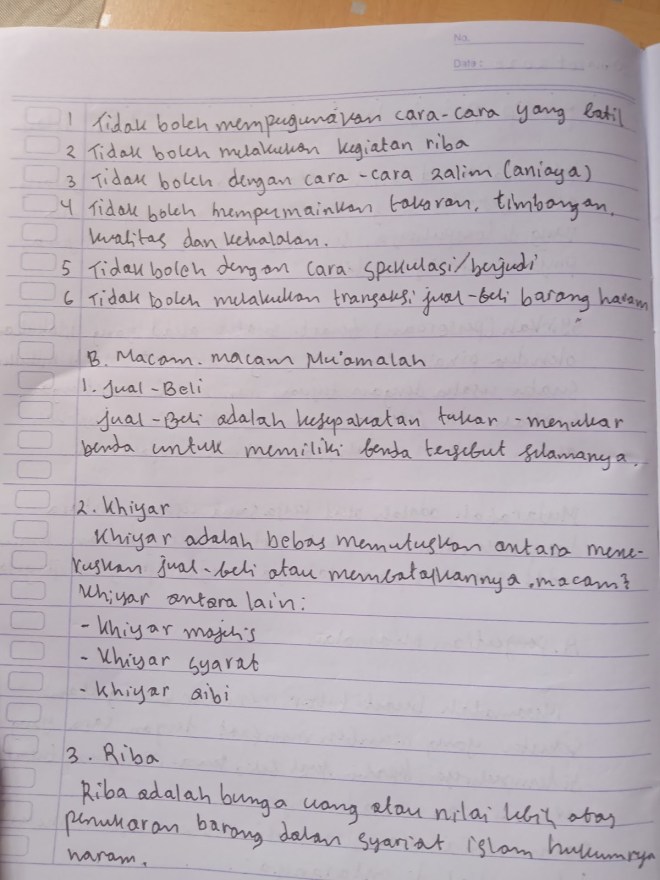 No.
Date :
1 Tidak boleh mempergunakan cara-cara yang batil
2 Tidak boleh melakukan kegiatan riba
3 Tidak boleh dengan cara-cara zalim (aniaya)
4 Tidak boleh mempermainkan takaran, timbangan,
kualitas dan kehalalan.
5 Tidak boleh dengan cara spekulasi/berjudi
6 Tidak boleh melakukan transaksi jual-beli barang haram
B. Macam-macam Mu'amalah
1. Jual-Beli
Jual-Beli adalah kesepakatan tukar-menukar
benda untuk memiliki benda tersebut selamanya.
2. Khiyar
Khiyar adalah bebas memutuskan antara mene-
ruskan jual-beli atau membatalkannya. macam²
Khiyar antara lain:
- Khiyar majelis
- Khiyar syarat
- Khiyar aibi
3. Riba
Riba adalah bunga uang atau nilai lebih atas
penukaran barang dalan syariat islam hukumnya
haram.